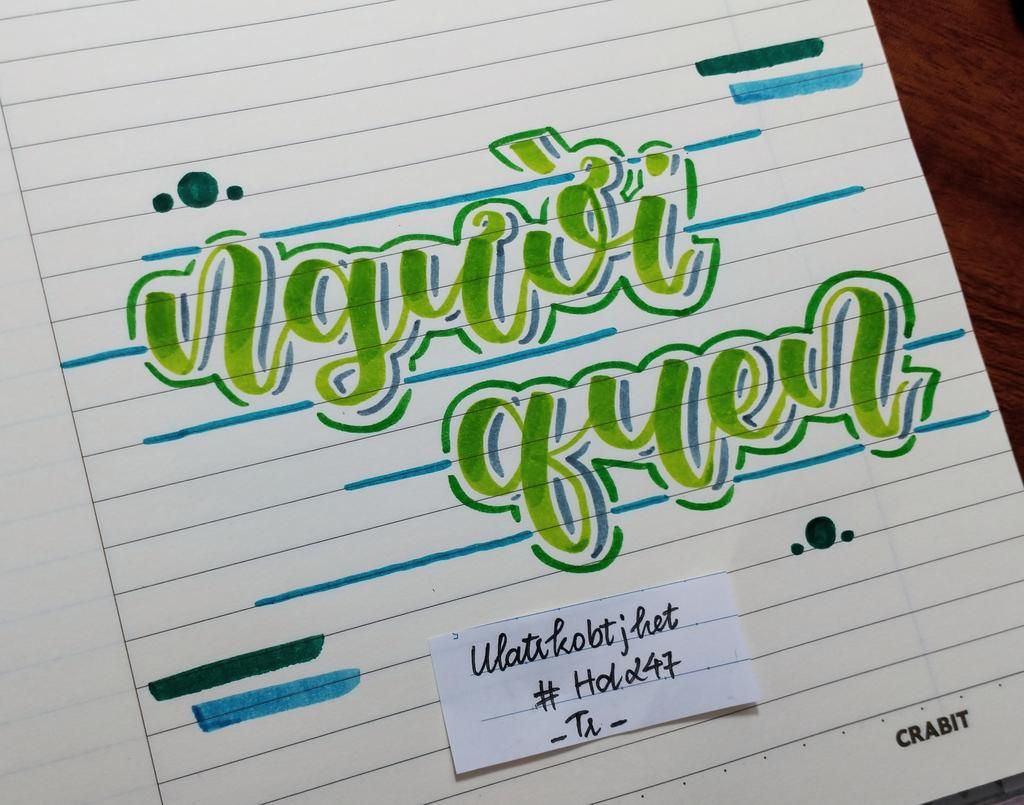 người
quen
Ulatikobtjhet
# Hd247
- Tr -
CRABIT